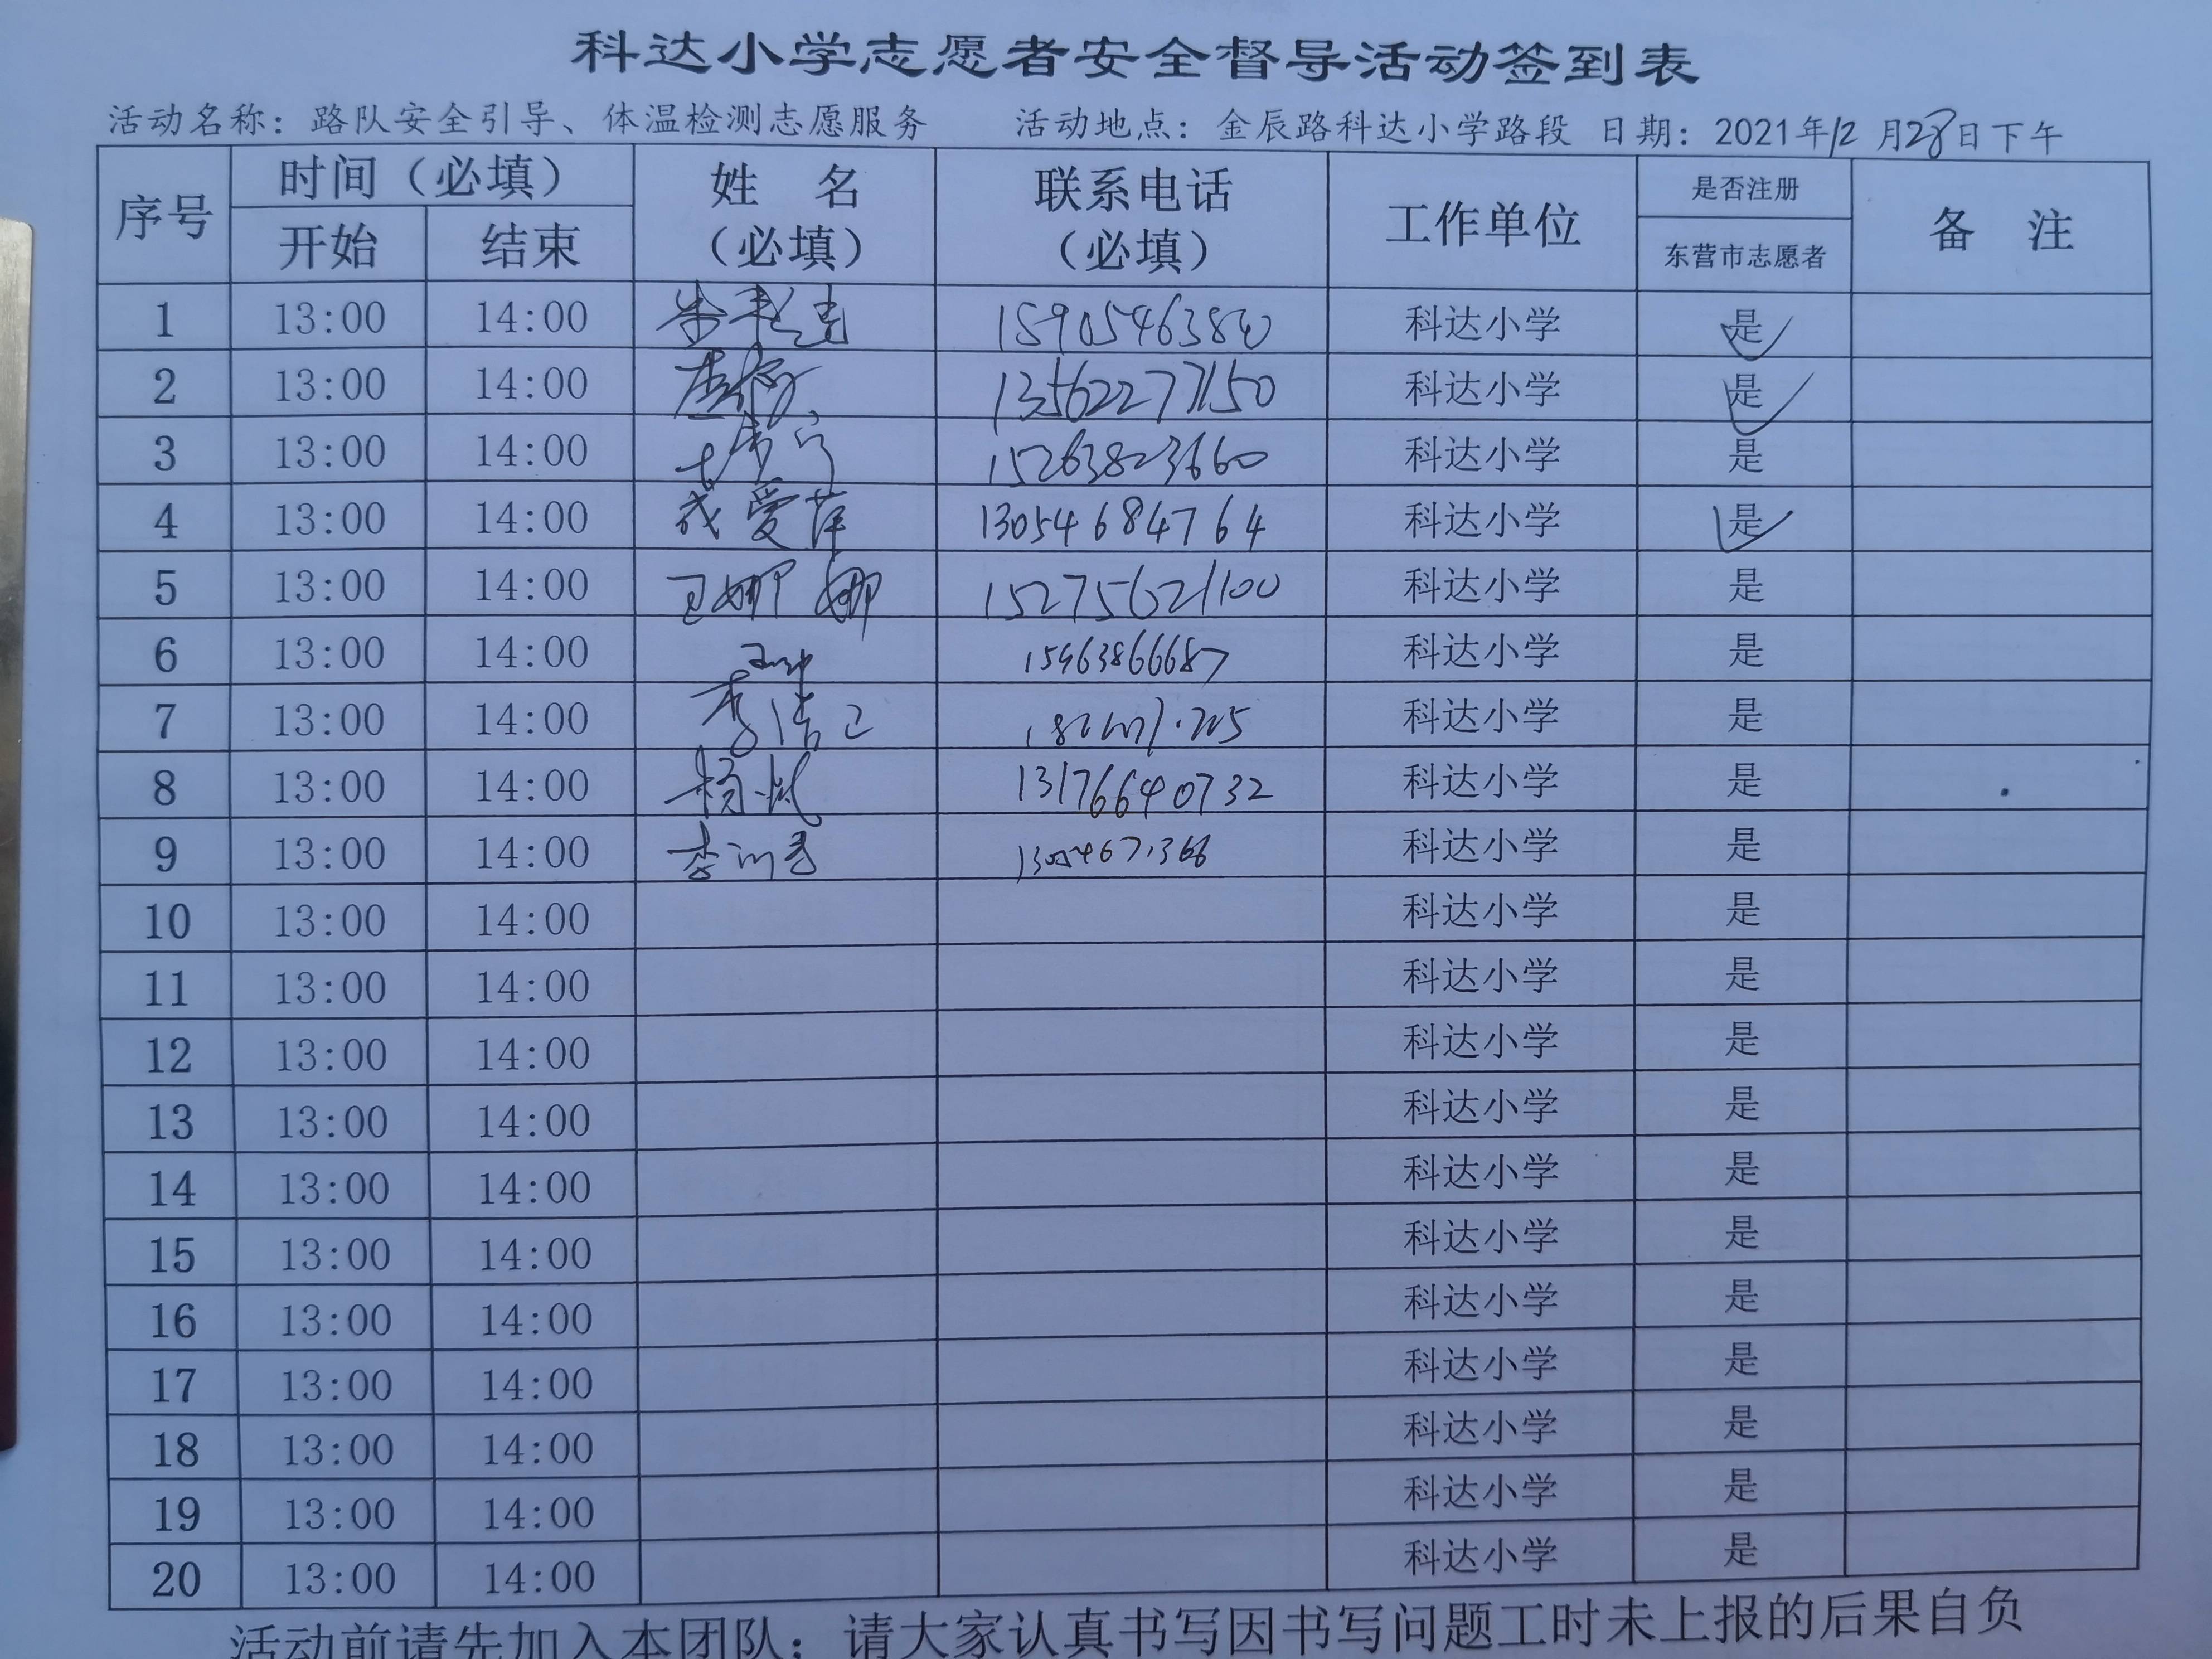 科达小学志愿者安全督导活动签到表
活动名称：路队安全引导、体温检测志愿服务 活动地点：金辰路科达小学路段 日期：2021年12月28日下午
序号 时间（必填） 姓 名（必填） 联系电话（必填） 工作单位 是否注册 备 注
开始 结束 东营市志愿者
1 13:00 14:00 科达小学 是
2 13:00 14:00 13562277150 科达小学 是
3 13:00 14:00 15263823660 科达小学 是
4 13:00 14:00 成爱萍 13054684764 科达小学 是
5 13:00 14:00 王娜娜 15275621100 科达小学 是
6 13:00 14:00 15963866687 科达小学 是
7 13:00 14:00 李 科达小学 是
8 13:00 14:00 杨斌 13176640732 科达小学 是
9 13:00 14:00 李 13054671366 科达小学 是
10 13:00 14:00 科达小学 是
11 13:00 14:00 科达小学 是
12 13:00 14:00 科达小学 是
13 13:00 14:00 科达小学 是
14 13:00 14:00 科达小学 是
15 13:00 14:00 科达小学 是
16 13:00 14:00 科达小学 是
17 13:00 14:00 科达小学 是
18 13:00 14:00 科达小学 是
19 13:00 14:00 科达小学 是
20 13:00 14:00 科达小学 是
活动前请先加入本团队；请大家认真书写因书写问题工时未上报的后果自负